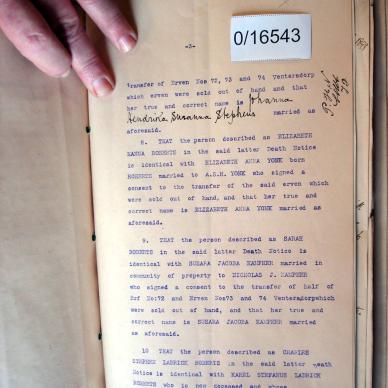 -3-
0/16543
Transfer of Erven Nos 72, 73 and 74 Ventersdorp
which erven were sold out of hand and that
her true and correct name is Johanna
Hendrina Susanna Stephens married as
aforesaid.
8. THAT the person described as ELIZABETH
HANNA ROBERTS in the said latter Death Notice
is identical with ELIZABETH ANNA YONK born
ROBERTS married to A.S.H. YONK who signed a
consent to the transfer of the said erven which
were sold out of hand, and that her true and
correct name is ELIZABETH ANNA YONK married as
aforesaid.
9. THAT the person described as SARAH
ROBERTS in the said latter Death Notice is
identical with SUSARA JACOBA married in
community of property to NICHOLAS J.
who signed a consent to the transfer of half of
Erf No:72 and Erven Nos73 and 74 Ventersdorpwhich
were sold out of hand, and that her true and
correct name is SUSARA JACOBA married
as aforesaid.
10 THAT the person described as CHARLES
STEPHEN LABRICK ROBERTS in the said latter Death
Notice is identical with KAREL STEFANUS LABRICK
ROBERTS who is now deceased and whose